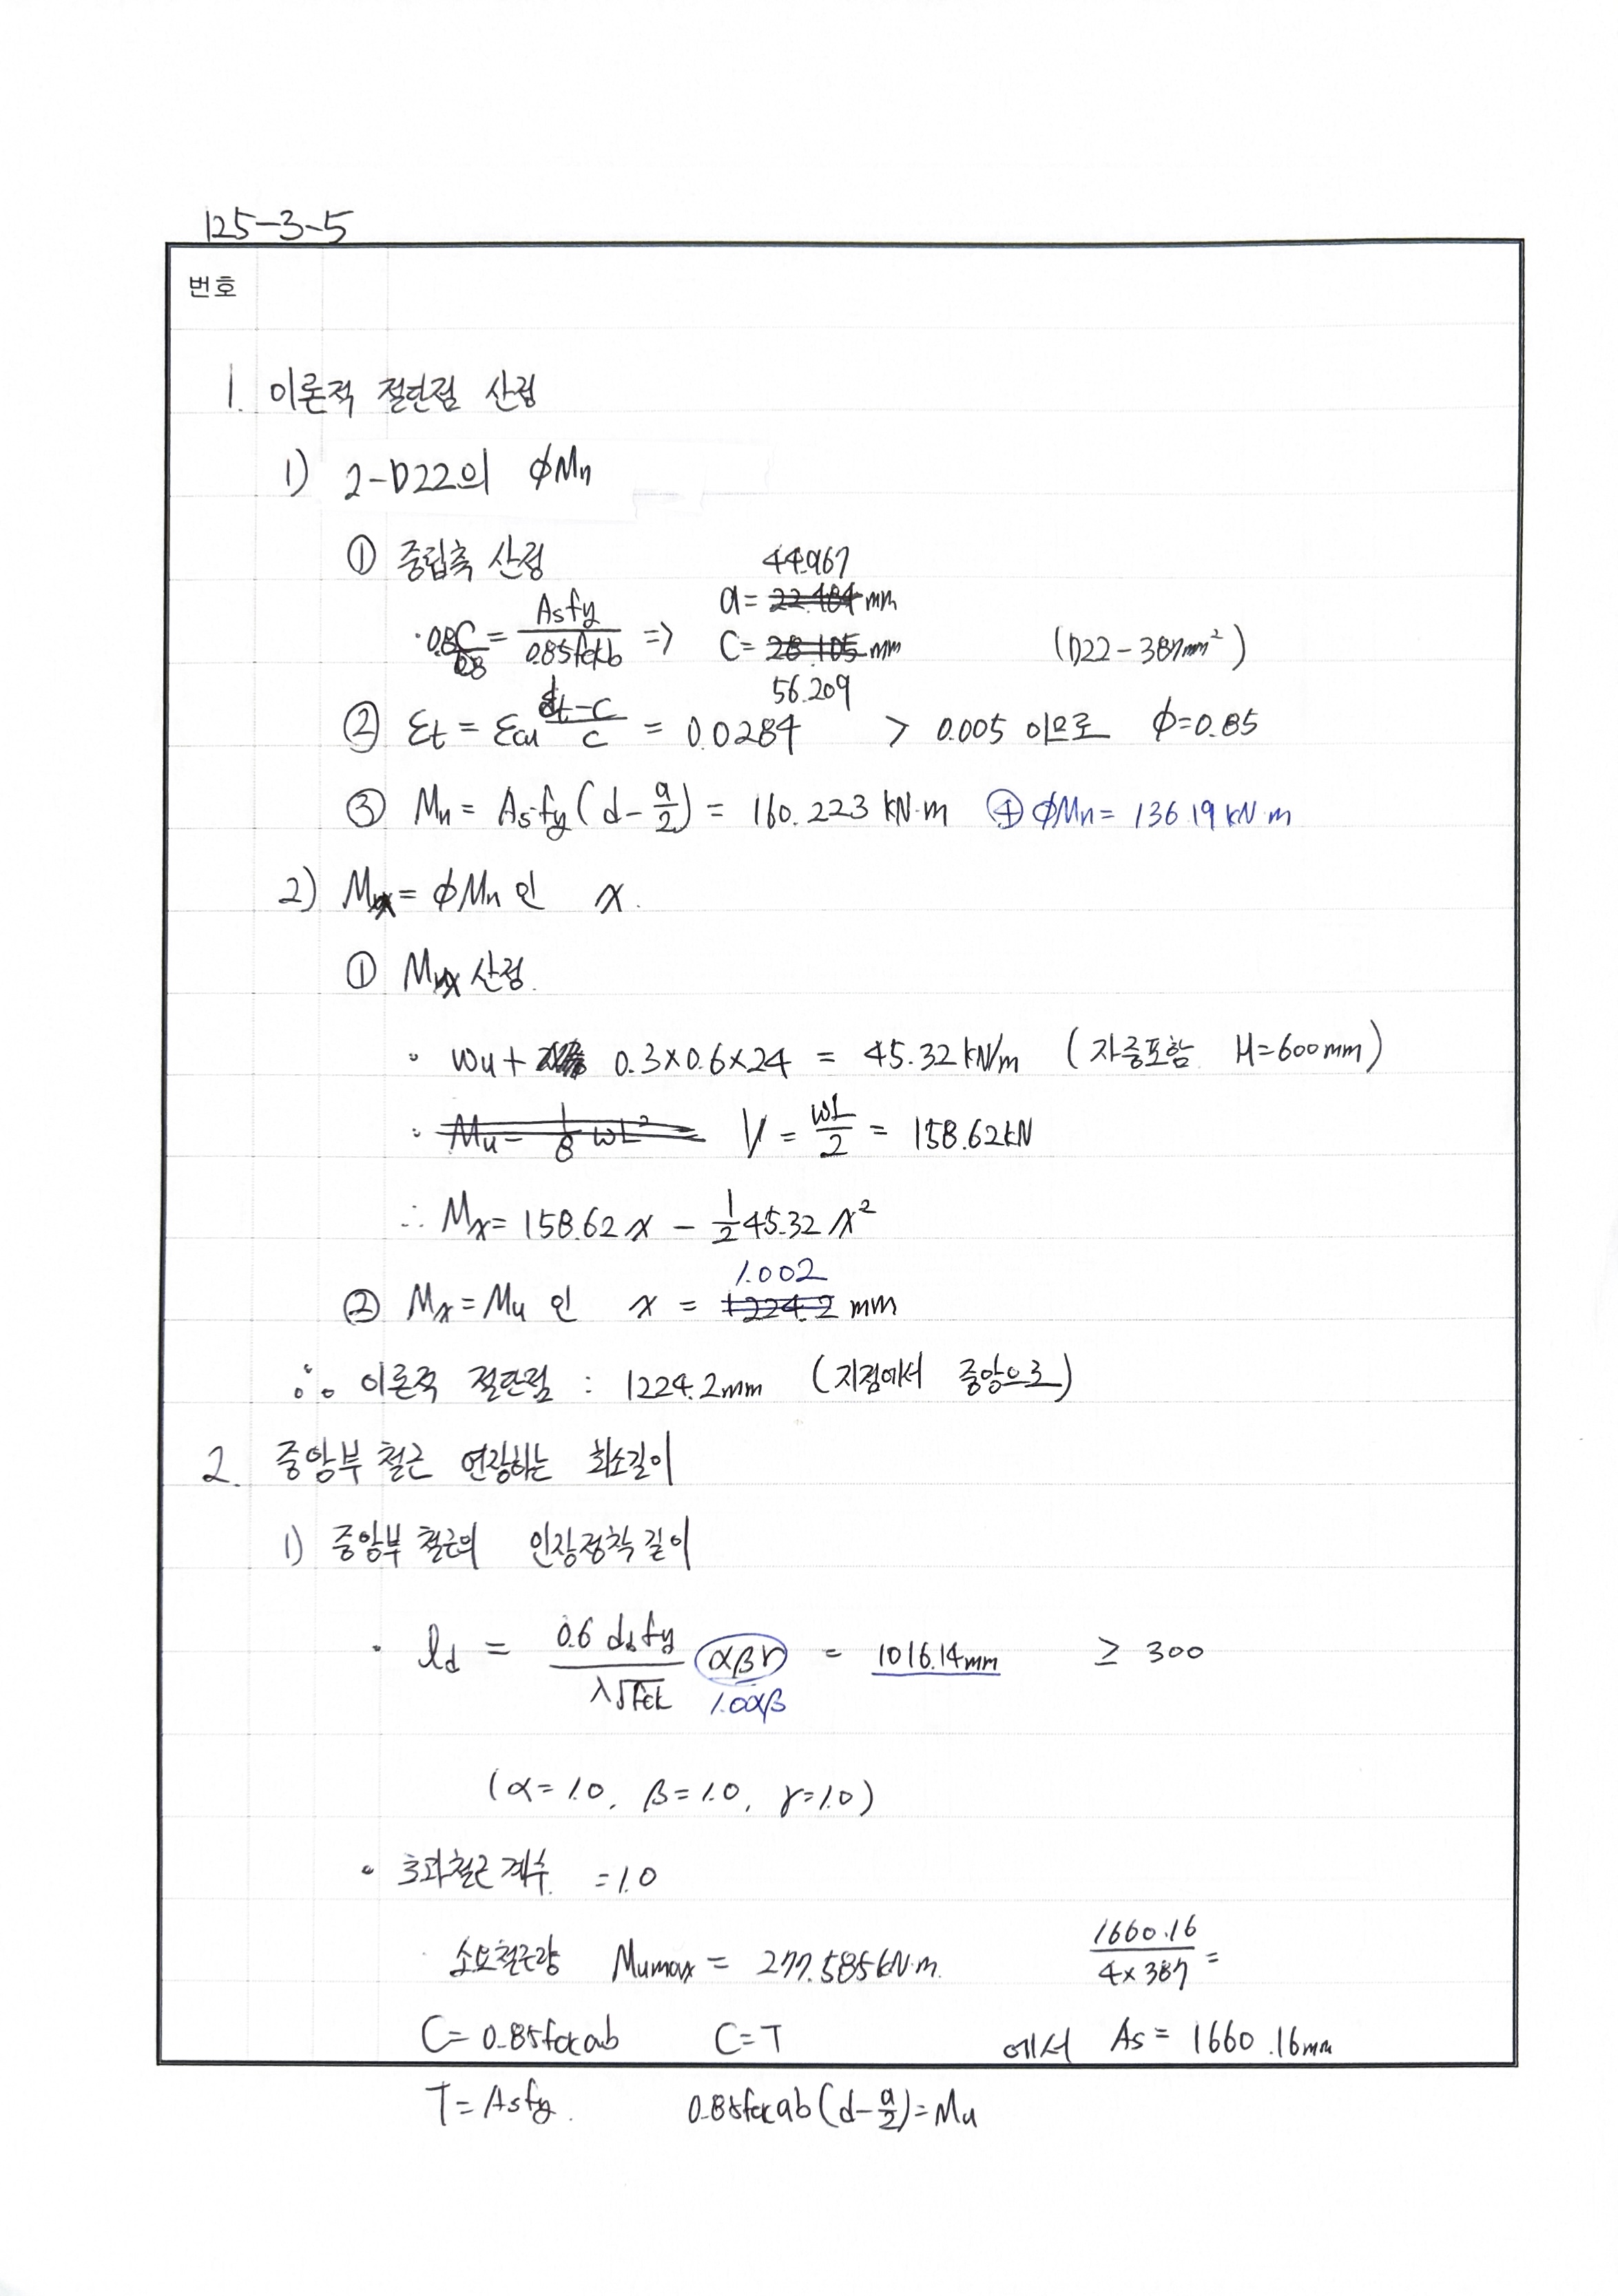 125-3-5
번호
1. 이론적 절단점 산정
1) 2-D22의 ϕMn
① 중립축 산정
44.967
· 0.8C/0.8 = Asfy/0.85fckb => a = 22.484 mm
C = 28.105 mm (D22 - 387mm²)
56.209
② εt = εcu (dt-c)/c = 0.0284 > 0.005 이므로 ϕ=0.85
③ Mn = Asfy(d - a/2) = 160.223 kN·m ④ ϕMn = 136.19 kN·m
2) Mx = ϕMn 인 x.
① Mx 산정.
· wu + 0.3×0.6×24 = 45.32 kN/m (자중포함 H=600mm)
· Mu = 1/8 wL² V = wL/2 = 158.62kN
∴ Mx = 158.62x - 1/2 45.32 x²
1.002
② Mx = Mu 인 x = 1224.2 mm
∴ 이론적 절단점 : 1224.2mm (지점에서 중앙으로)
2. 중앙부 철근 연장하는 최소길이
1) 중앙부 철근의 인장정착길이
· ld = 0.6 db fy/λ√fck αβγ = 1016.14mm ≥ 300
1.0αβ
(α=1.0, β=1.0, γ=1.0)
· 초과철근 계수. = 1.0
· 소요철근량 Mumax = 277.585kN·m. 1660.16/4×387 =
C = 0.85fckab C=T 에서 As = 1660.16mm
T = Asfy. 0.85fckab(d - a/2) = Mu